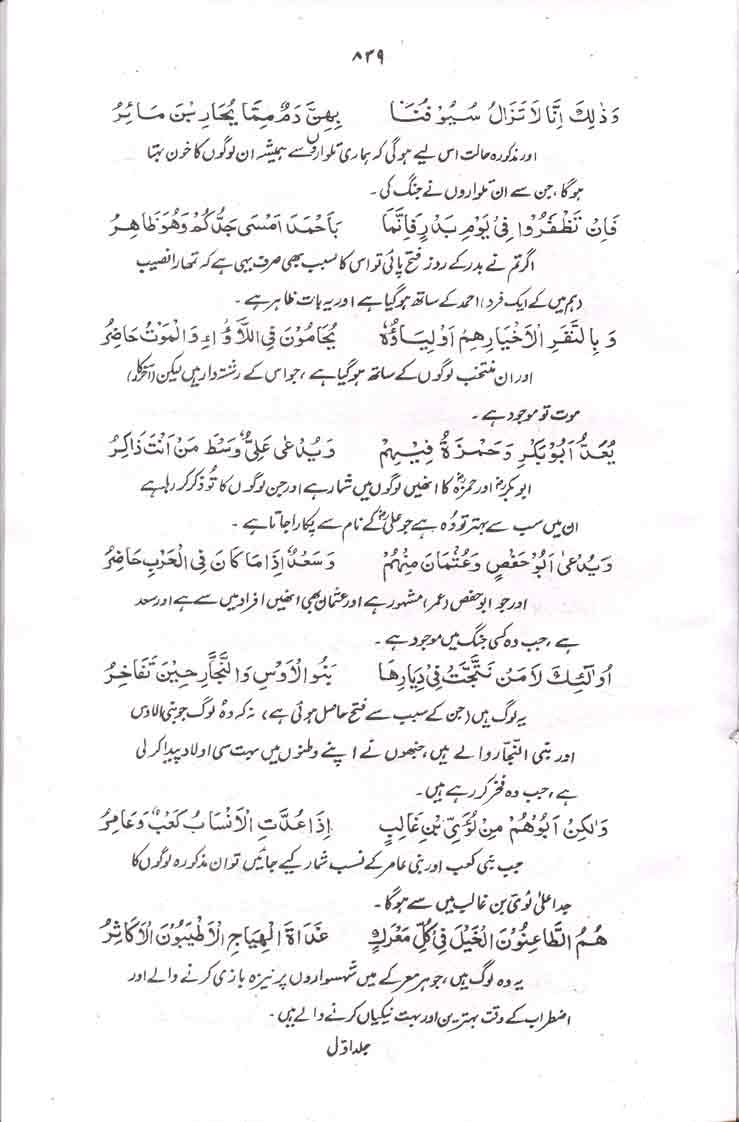 ۸۳۹
وَذٰلِكَ اِنَّا لَا تَزَالُ سُيُوْفُنَا بِهِنَّ دَمٌ مِمَّا يُحَارِبْنَ مَائِرُ
اور مذکورہ حالت اس لیے ہوگی کہ ہماری تلواروں سے ہمیشہ ان لوگوں کا خون بہتا
ہوگا، جن سے ان تلواروں نے جنگ کی۔
فَاِنْ تَظْفَرُوْا فِیْ يَوْمِ بَدْرٍ فَاِنَّمَا بِاَحْمَدَ اَمْسٰی جَدُّكُمْ وَهُوَ ظَاهِرُ
اگر تم نے بدر کے روز فتح پائی تو اس کا سبب بھی صرف یہی ہے کہ تمھارا نصیب
(ہم میں کے ایک فرد) احمد کے ساتھ ہوگیا ہے اور یہ بات ظاہر ہے۔
وَبِالنَّفَرِ الْاَخْيَارِ هِمُ اَوْلِيَاؤُهٗ يُحَامُوْنَ فِی اللَّاْوَاءِ وَالْمَوْتُ حَاضِرُ
اور ان منتخب لوگوں کے ساتھ ہوگیا ہے، جو اس کے رشتہ دار ہیں لیکن (آخر کار)
موت تو موجود ہے۔
يُعَدُّ اَبُوْ بَكْرٍ وَحَمْزَةُ فِيْهِمْ وَيُدْعٰی عَلِیٌّ وَسْطَ مَنْ اَنْتَ ذَاكِرُ
ابوبکرؓ اور حمزہؓ کا انھیں لوگوں میں شمار ہے اور جن لوگوں کا تُو ذکر کر رہا ہے
ان میں سب سے بہتر تو وُہ ہے جو علیؓ کے نام سے پکارا جاتا ہے۔
وَيُدْعٰی اَبُوْ حَفْصٍ وَعُثْمَانُ مِنْهُمُ وَسَعْدٌ اِذَا مَا كَانَ فِی الْحَرْبِ حَاضِرُ
اور جو ابو حفص (عمر) مشہور ہے اور عثمان بھی انھیں افراد میں سے ہے اور سعد
ہے، جب وہ کسی جنگ میں موجود ہے۔
اُولٰئِكَ لَا مَنْ نَتَّجَتْ فِیْ دِيَارِهَا بَنُو الْاَوْسِ وَالنَّجَّارِ حِيْنَ تَفَاخَرُ
یہ لوگ ہیں (جن کے سبب سے فتح حاصل ہوئی ہے)، نہ کہ وہ لوگ جو بنی الاوس
اور بنی النجّار والے ہیں، جنھوں نے اپنے وطنوں میں بہت سی اولاد پیدا کر لی
ہے، جب وہ فخر کر رہے ہیں۔
وَلٰكِنْ اَبُوْهُمْ مِنْ لُؤَیِّ بْنِ غَالِبٍ اِذَا عُدَّتِ الْاَنْسَابُ كَعْبٌ وَعَامِرُ
جب بنی کعب اور بنی عامر کے نسب شمار کیے جائیں تو ان مذکورہ لوگوں کا
جد اعلٰی لُوَیّ بن غالب میں سے ہوگا۔
هُمُ الطَّاعِنُوْنَ الْخَيْلَ فِیْ كُلِّ مَعْرَكٍ غَدَاةَ الْهِيَاجِ الْاَطْيَبُوْنَ الْاَكَاثِرُ
یہ وہ لوگ ہیں، جو ہر معرکے میں شہسواروں پر نیزہ بازی کرنے والے اور
اضطراب کے وقت بہترین اور بہت نیکیاں کرنے والے ہیں۔
جلد اوّل